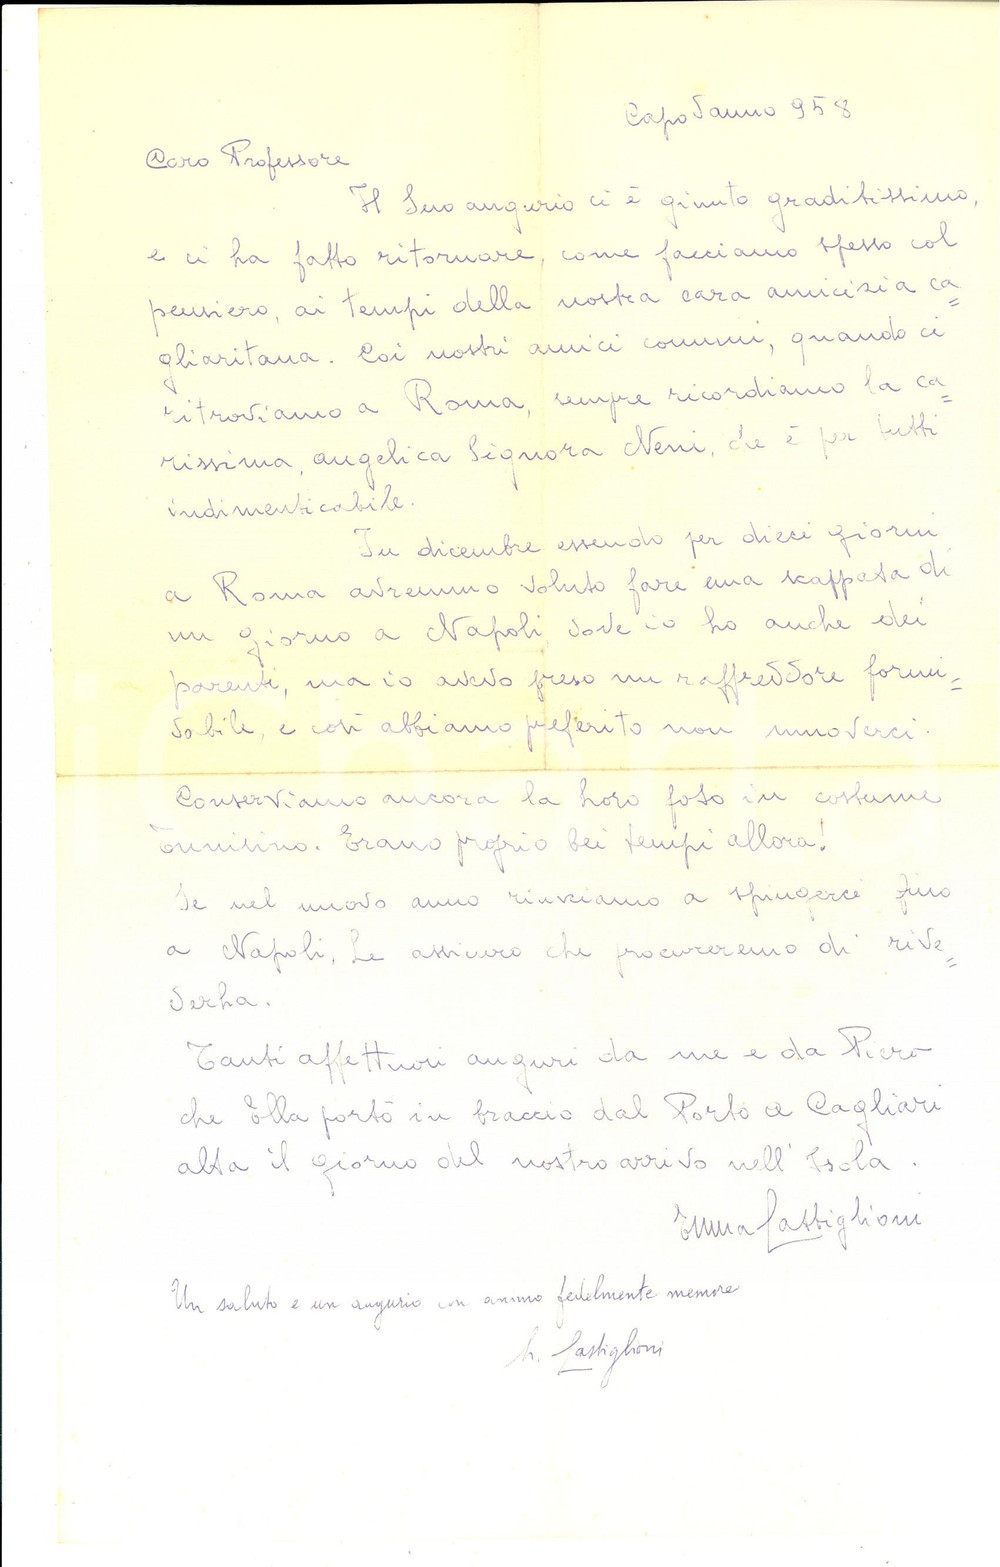 Capodanno 958
Caro Professore
Il Suo augurio ci è giunto graditissimo,
e ci ha fatto ritornare, come facciamo spesso col
pensiero, ai tempi della nostra cara amicizia ca=
gliaritana. Coi nostri amici comuni, quando ci
ritroviamo a Roma, sempre ricordiamo la ca=
rissima, angelica Signora Neni, che è per tutti
indimenticabile.
In dicembre essendo per dieci giorni
a Roma avremmo voluto fare una scappata di
un giorno a Napoli, dove io ho anche dei
parenti, ma io avevo preso un raffreddore formi=
dabile, e così abbiamo preferito non muoverci.
Conserviamo ancora la loro foto in costume
Tunisino. Erano proprio bei tempi allora!
Se nel nuovo anno riusciamo a spingerci fino
a Napoli, Le assicuro che procureremo di rive=
derla.
Tanti affettuosi auguri da me e da Piero
che Ella portò in braccio dal Porto a Cagliari
alta il giorno del nostro arrivo nell'Isola.
Emma Castiglioni
Un saluto e un augurio con animo fedelmente memore
Castiglioni